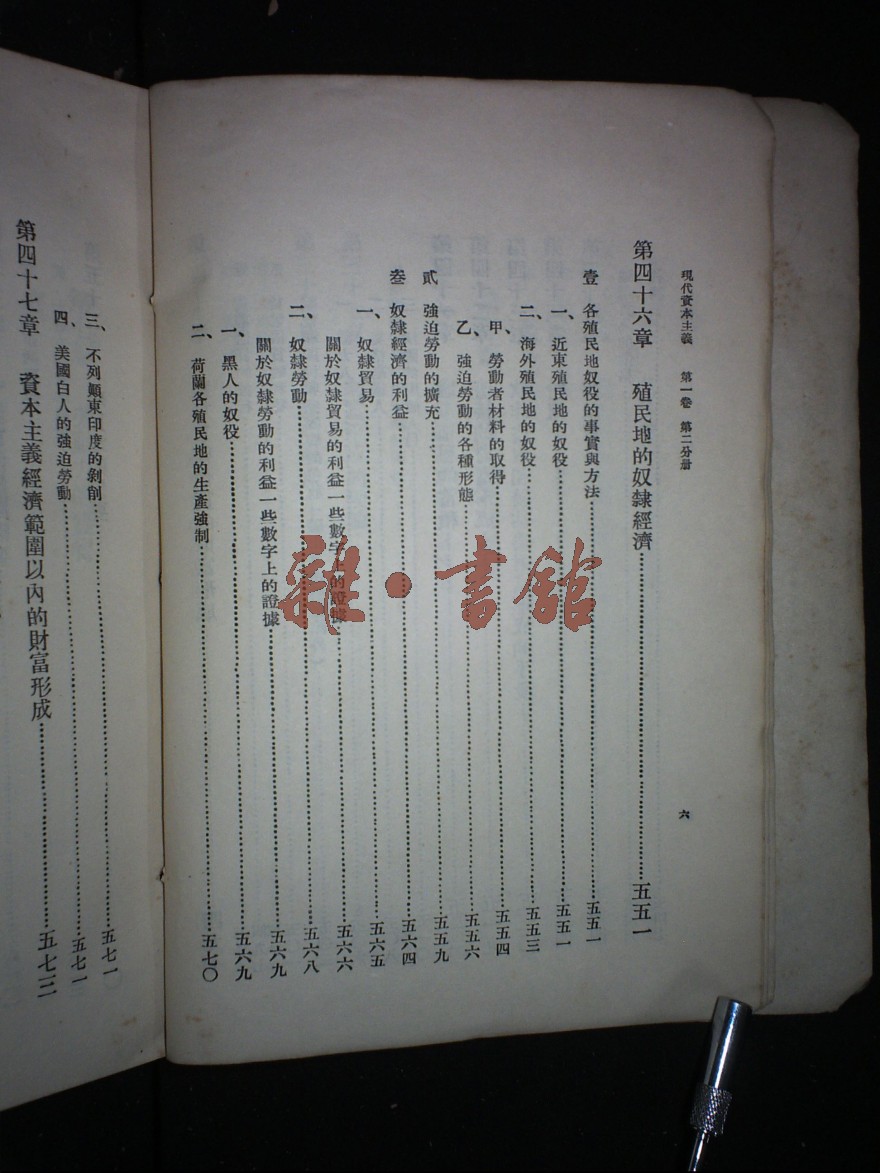 現代資本主義 第一卷 第二分册
六
第四十六章 殖民地的奴隸經濟……五五一
壹 各殖民地奴役的事實與方法……五五一
一、近東殖民地的奴役……五五一
二、海外殖民地的奴役……五五三
甲、勞動者材料的取得……五五四
乙、強迫勞動的各種形態……五五六
貳 強迫勞動的擴充……五五九
叁 奴隸經濟的利益……五六四
一、奴隸貿易……五六五
關於奴隸貿易的利益一些數字上的證據……五六六
二、奴隸勞動……五六八
關於奴隸勞動的利益一些數字上的證據……五六九
一、黑人的奴役……五六九
二、荷蘭各殖民地的生產強制……五七〇
三、不列顛東印度的剝削……五七一
四、美國白人的強迫勞動……五七一
第四十七章 資本主義經濟範圍以內的財富形成……五七三
雜·書館